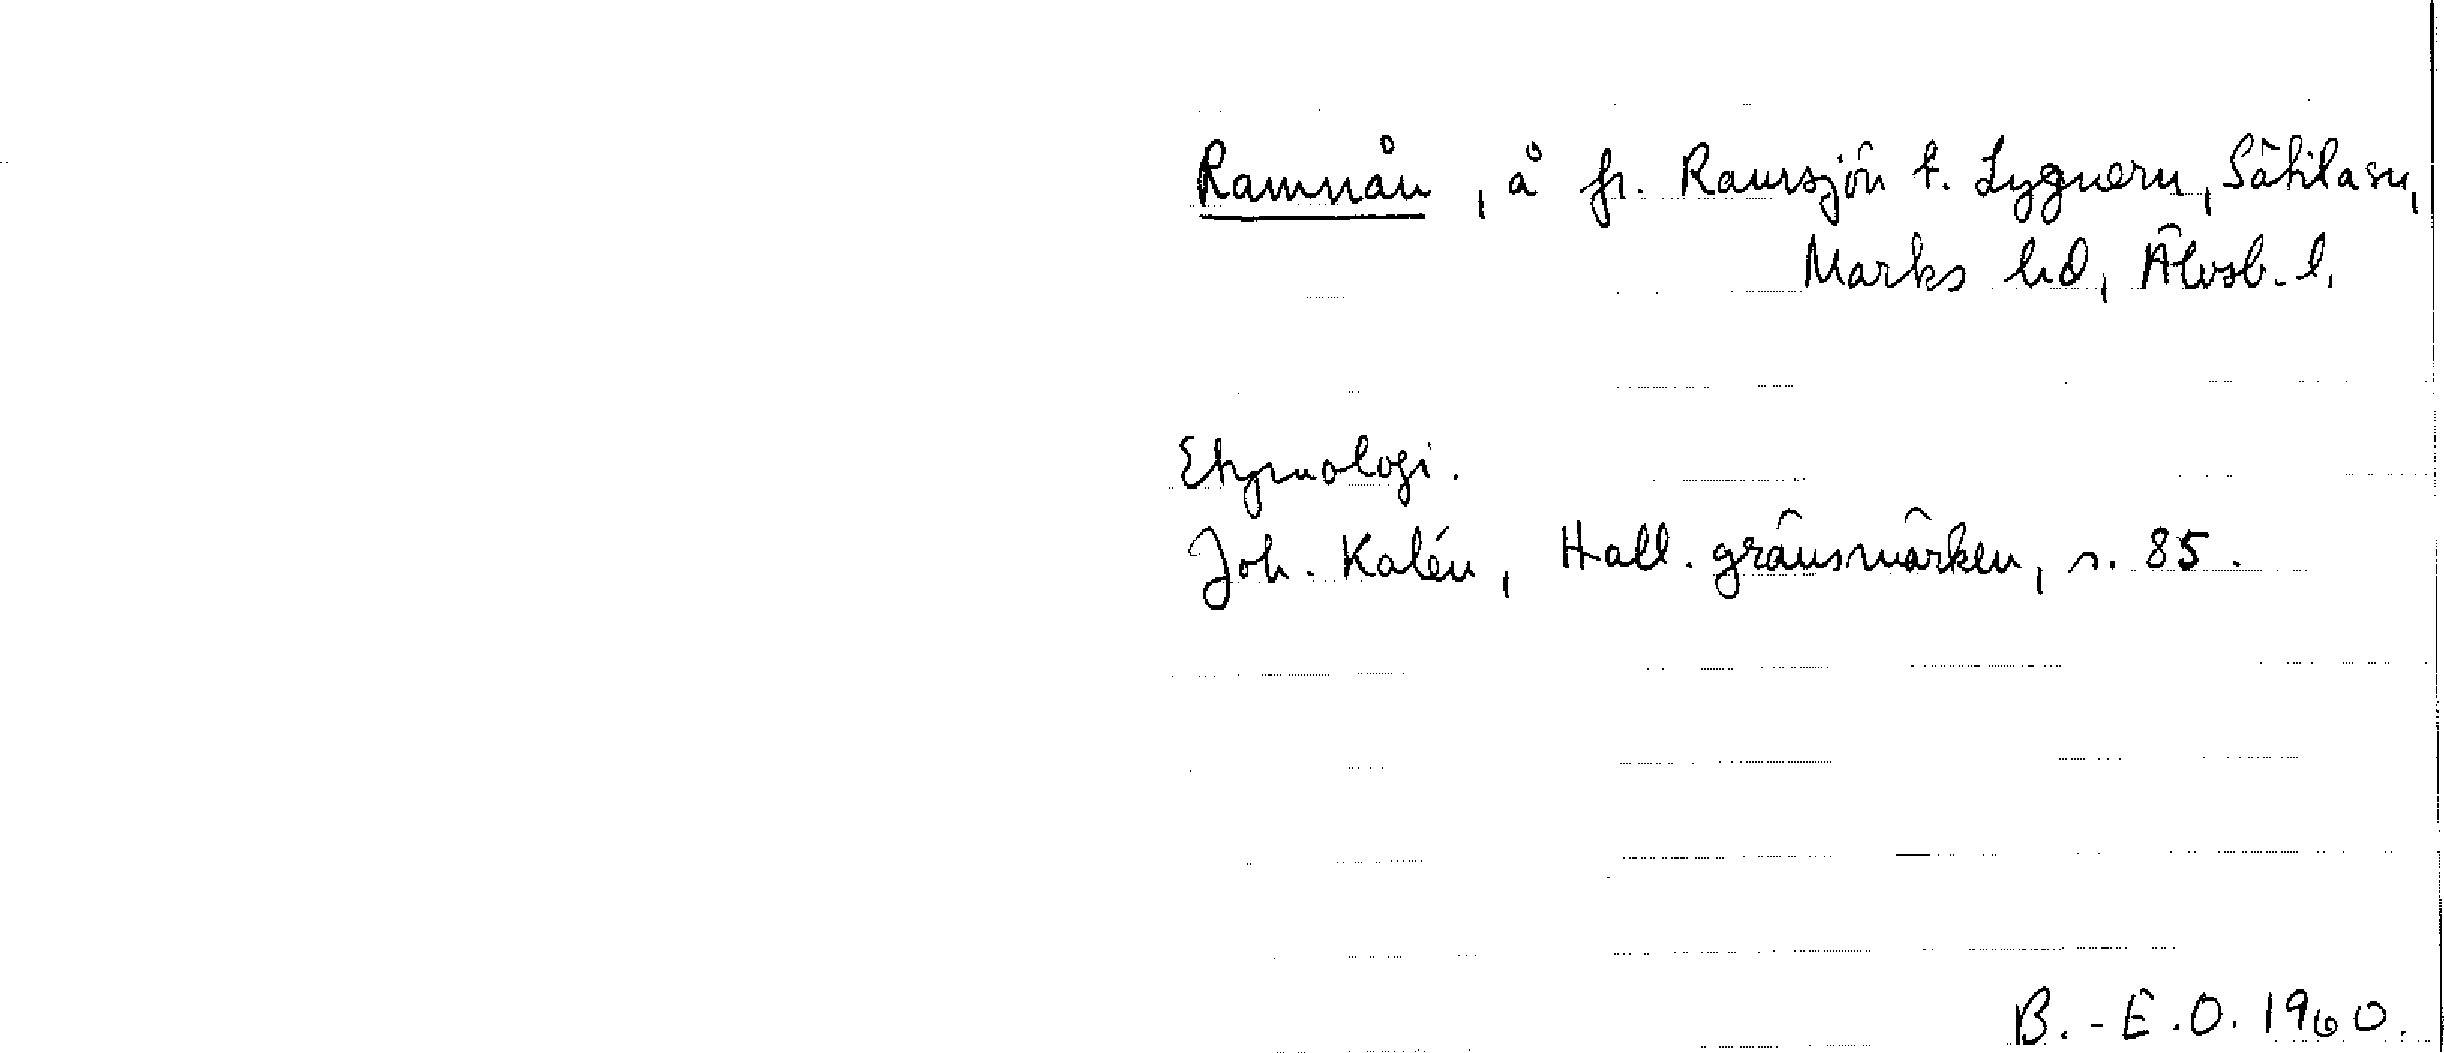 Ramnån, å fr. Ramsjön t. Lygnern, Sätilasn,
Marks hd, Älvsb. l.
Etymologi.
Joh. Kalén, Hall. gränsmärken, s. 85.
B.-E.O. 1960.